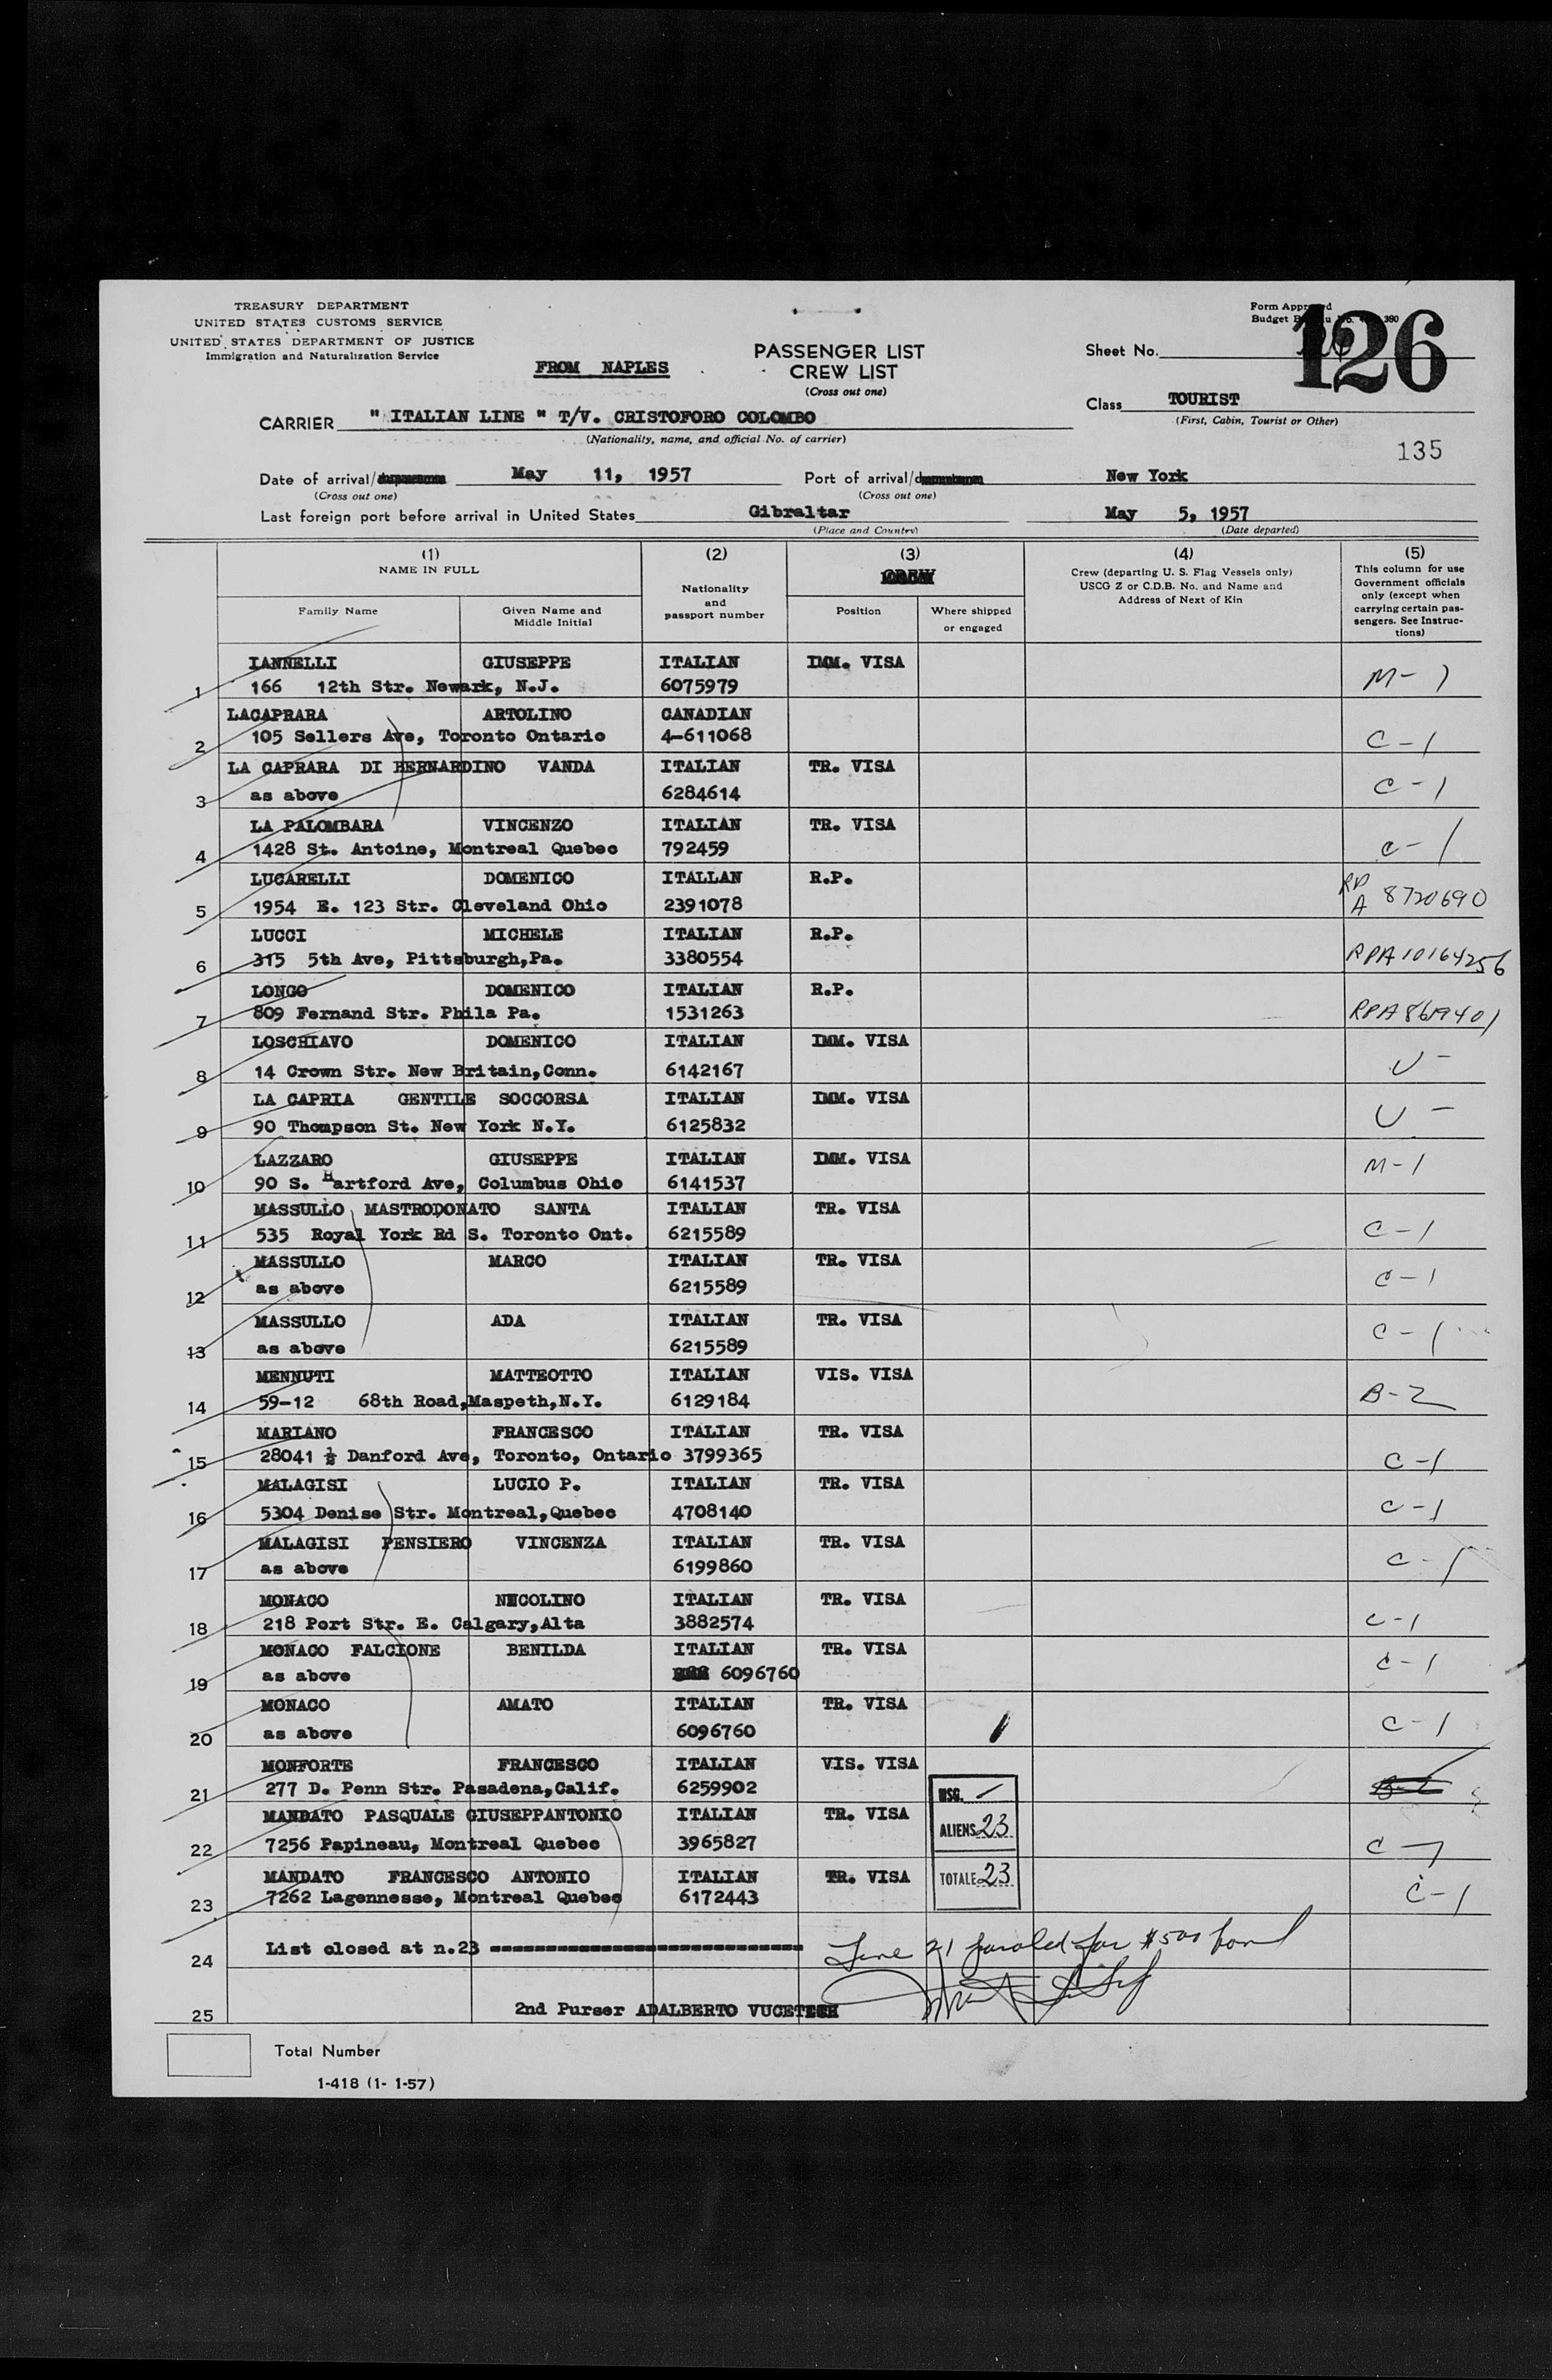 TREASURY DEPARTMENT
UNITED STATES CUSTOMS SERVICE
UNITED STATES DEPARTMENT OF JUSTICE
Immigration and Naturalization Service
FROM NAPLES
PASSENGER LIST
CREW LIST
(Cross out one)
Form Approved
Budget
Sheet No.
126
Class TOURIST
(First, Cabin, Tourist or Other)
CARRIER " ITALIAN LINE " T/V. CRISTOFORO COLOMBO
(Nationality, name, and official No. of carrier)
135
Date of arrival/ May 11, 1957 Port of arrival/ New York
(Cross out one) (Cross out one)
Last foreign port before arrival in United States Gibraltar May 5, 1957
(Place and Country) (Date departed)
(1) (2) (3) (4) (5)
NAME IN FULL
Family Name Given Name and Middle Initial
Nationality and passport number
Position Where shipped or engaged
Crew (departing U. S. Flag Vessels only)
USCG Z or C.D.B. No. and Name and
Address of Next of Kin
This column for use
Government officials
only (except when
carrying certain pas-
sengers. See Instruc-
tions)
IANNELLI GIUSEPPE ITALIAN IMM. VISA
1 166 12th Str. Newark, N.J. 6075979 M-1
LACAPRARA ARTOLINO CANADIAN
2 105 Sellers Ave, Toronto Ontario 4-611068 C-1
LA CAPRARA DI BERNARDINO VANDA ITALIAN TR. VISA
3 as above 6284614 C-1
LA PALOMBARA VINCENZO ITALIAN TR. VISA
4 1428 St. Antoine, Montreal Quebec 792459 C-1
LUCARELLI DOMENICO ITALLAN R.P.
5 1954 E. 123 Str. Cleveland Ohio 2391078 RP A 8720690
LUCCI MICHELE ITALIAN R.P.
6 315 5th Ave, Pittsburgh,Pa. 3380554 RPA10164256
LONGO DOMENICO ITALIAN R.P.
7 809 Fernand Str. Phila Pa. 1531263
LOSCHIAVO DOMENICO ITALIAN IMM. VISA
8 14 Crown Str. New Britain,Conn. 6142167 U -
LA CAPRIA GENTILE SOCCORSA ITALIAN IMM. VISA
9 90 Thompson St. New York N.Y. 6125832 U -
LAZZARO GIUSEPPE ITALIAN IMM. VISA
10 90 S. Hartford Ave, Columbus Ohio 6141537 M-1
MASSULLO MASTRODONATO SANTA ITALIAN TR. VISA
11 535 Royal York Rd S. Toronto Ont. 6215589 C-1
MASSULLO MARCO ITALIAN TR. VISA
12 as above 6215589 C-1
MASSULLO ADA ITALIAN TR. VISA
13 as above 6215589 C-1
MENNUTI MATTEOTTO ITALIAN VIS. VISA
14 59-12 68th Road,Maspeth,N.Y. 6129184 B-2
MARIANO FRANCESCO ITALIAN TR. VISA
15 28041 ½ Danford Ave, Toronto, Ontario 3799365 C-1
MALAGISI LUCIO P. ITALIAN TR. VISA
16 5304 Denise Str. Montreal,Quebec 4708140 C-1
MALAGISI PENSIERO VINCENZA ITALIAN TR. VISA
17 as above 6199860 C-1
MONACO NICOLINO ITALIAN TR. VISA
18 218 Port Str. E. Calgary,Alta 3882574 C-1
MONACO FALCIONE BENILDA ITALIAN TR. VISA
19 as above 6096760 C-1
MONACO AMATO ITALIAN TR. VISA
20 as above 6096760 C-1
MONFORTE FRANCESCO ITALIAN VIS. VISA
21 277 D. Penn Str. Pasadena,Calif. 6259902 B-2
MANDATO PASQUALE GIUSEPPANTONIO ITALIAN TR. VISA
22 7256 Papineau, Montreal Quebec 3965827 C-1
MANDATO FRANCESCO ANTONIO ITALIAN TR. VISA
23 7262 Lagennesse, Montreal Quebec 6172443 C-1
USC. -
ALIENS 23
TOTALE 23
24 List closed at n.23 Line 21 paroled for $500 bond
25 2nd Purser ADALBERTO
Total Number
1-418 (1- 1-57)